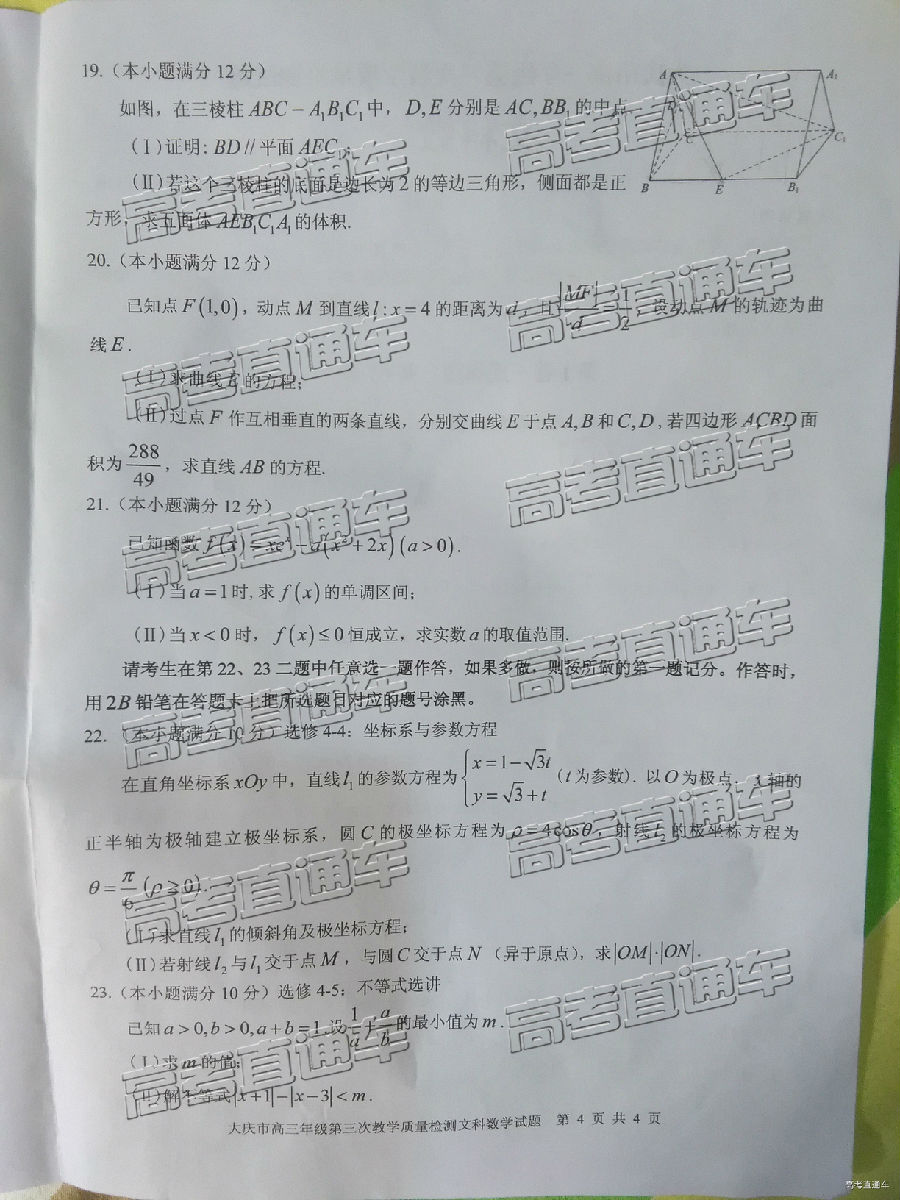 19.（本小题满分12分）
如图，在三棱柱ABC－A₁B₁C₁中，D,E分别是AC,BB₁的中点
(Ⅰ)证明: BD//平面AEC₁;
(Ⅱ)若这个三棱柱的底面是边长为2的等边三角形，侧面都是正
方形，求五面体AEB₁C₁A₁的体积.
A
A₁
D
C
C₁
B
E
B₁
20.（本小题满分12分）
已知点F(1,0)，动点M到直线l:x=4的距离为d，且|MF|/d=1/2，设动点M的轨迹为曲
线E.
(Ⅰ)求曲线E的方程;
(Ⅱ)过点F作互相垂直的两条直线，分别交曲线E于点A,B和C,D,若四边形ACBD面
积为288/49，求直线AB的方程.
21.（本小题满分12分）
已知函数f(x)=xeˣ－a(x²+2x)(a>0).
(Ⅰ)当a=1时,求f(x)的单调区间;
(Ⅱ)当x<0时，f(x)≤0恒成立，求实数a的取值范围.
请考生在第22、23二题中任意选一题作答，如果多做，则按所做的第一题记分。作答时，
用2B铅笔在答题卡上把所选题目对应的题号涂黑。
22.（本小题满分10分）选修4-4：坐标系与参数方程
在直角坐标系xOy中，直线l₁的参数方程为{x=1－√3t y=√3+t (t为参数). 以O为极点，x轴的
正半轴为极轴建立极坐标系，圆C的极坐标方程为ρ=4cosθ，射线l₂的极坐标方程为
θ=π/6(ρ≥0).
(Ⅰ)求直线l₁的倾斜角及极坐标方程;
(Ⅱ)若射线l₂与l₁交于点M，与圆C交于点N（异于原点），求|OM|·|ON|.
23.（本小题满分10分）选修4-5：不等式选讲
已知a>0,b>0,a+b=1,设1/a+a/b的最小值为m.
(Ⅰ)求m的值;
(Ⅱ)解不等式|x+1|－|x－3|<m.
大庆市高三年级第三次教学质量检测文科数学试题 第 4 页 共 4 页
高考直通车
高考直通车
高考直通车
高考直通车
高考直通车
高考直通车
高考直通车
高考直通车
高考直通车
高考直通车
高考直通车
高考直通车
高考直通车